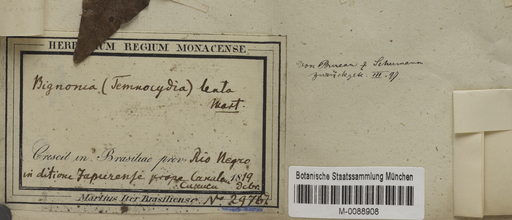 HERBARIUM REGIUM MONACENSE
Bignonia (Temnocydia) lenta
Mart.
Crescit in Brasiliae prov. Rio Negro
in ditione Japurensi prope Canalem 1819
Decbr.
Martius Iter Brasiliense. No 2976.
von Bureau & Schumann
zurückgek. III. 97
Botanische Staatssammlung München
M-0088906